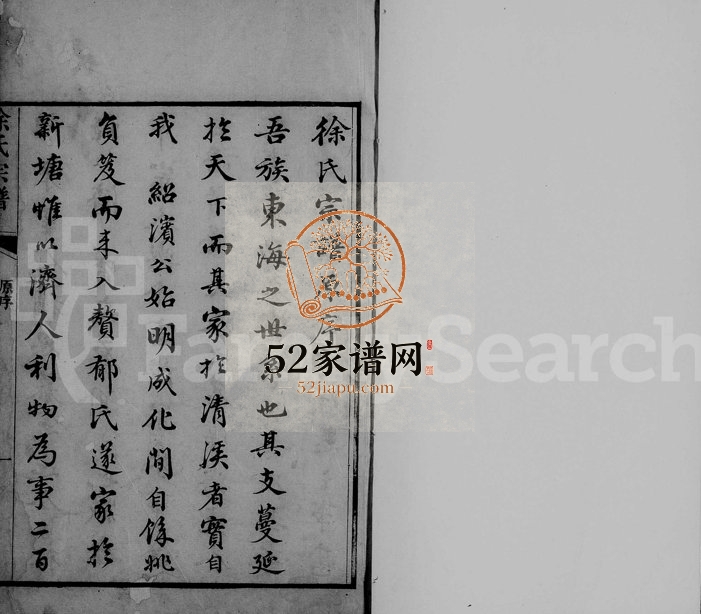 徐氏宗譜原序
吾族東海之世系也其支蔓延
於天下而其家於清溪者實自
我 紹濱公始明成化間自餘姚
負笈而来入贅郁氏遂家於
新塘惟以濟人利物為事二百
徐氏宗譜
原序
52家谱网
52jiapu.com
FamilySearch